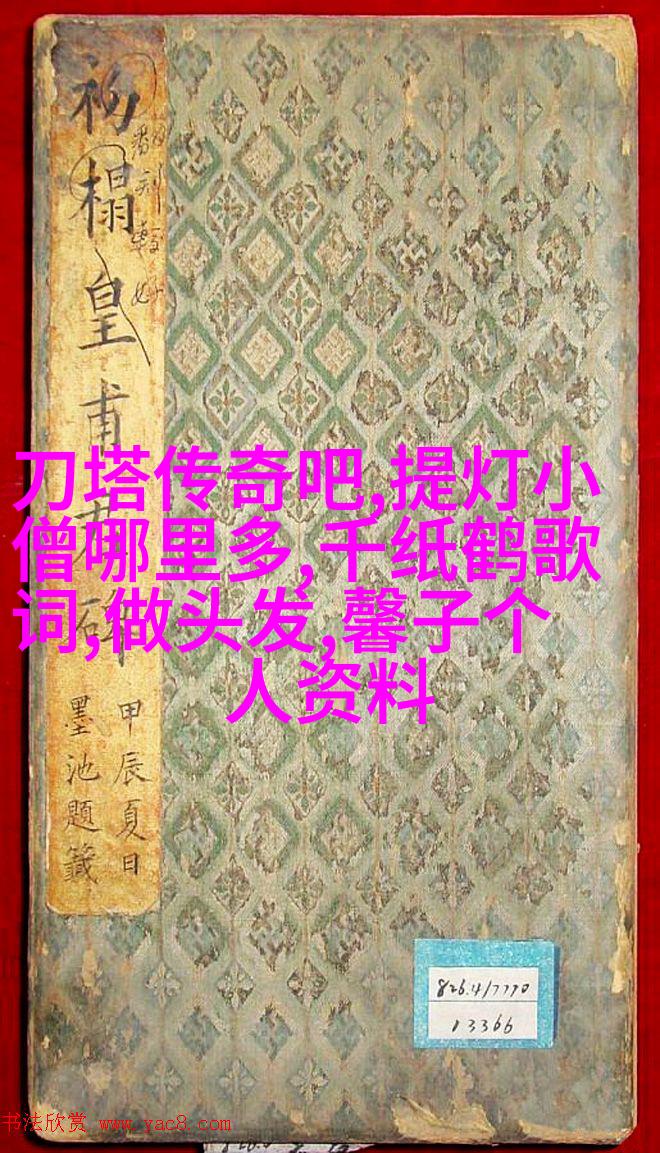 初榻皇甫君碑
甲辰夏日
墨池題籤
刀塔传奇吧,提灯小
僧哪里多,千纸鹤歌
词,做头发,馨子个
人资料
826.4/7770
13366
书法欣赏 www.yac8.com